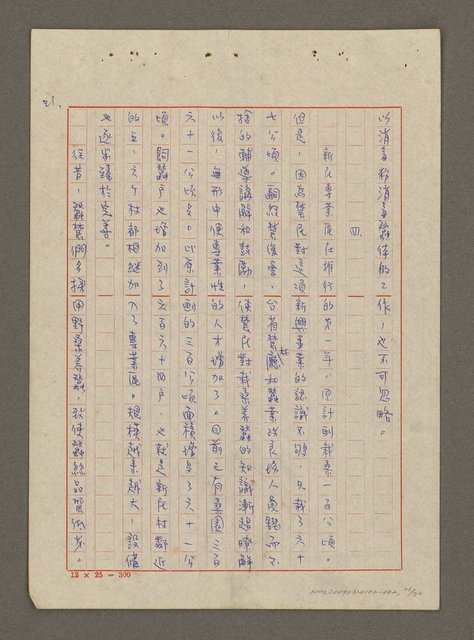 21.
以消毒粉消毒蠶体的工作，也不可忽略。
四、
新民專業區在推行的第一年，原計劃栽桑一百公頃。
但是，因為農民對這項新興事業的認識不夠，只栽了六十
七公頃。嗣經農復會、台省農林廳和蠶業改良場人員鍥而不
捨的輔導講解和鼓勵，使農民對栽桑養蠶的知識漸趨瞭解
以後，無形中使專業性的人才增加了。目前已有桑園三百
六十一公頃多。比原計劃的三百公頃面積增多了六十一公
頃。飼蠶戶也增加到了六百六十四戶，也就是新民村鄰近
的五、六個村都相繼加入了專業區。規模越來越大，設備
也逐漸臻於完善。
往昔，蠶農們多採田野桑養蠶，致使蠶絲品質低劣。
12 × 25 = 300